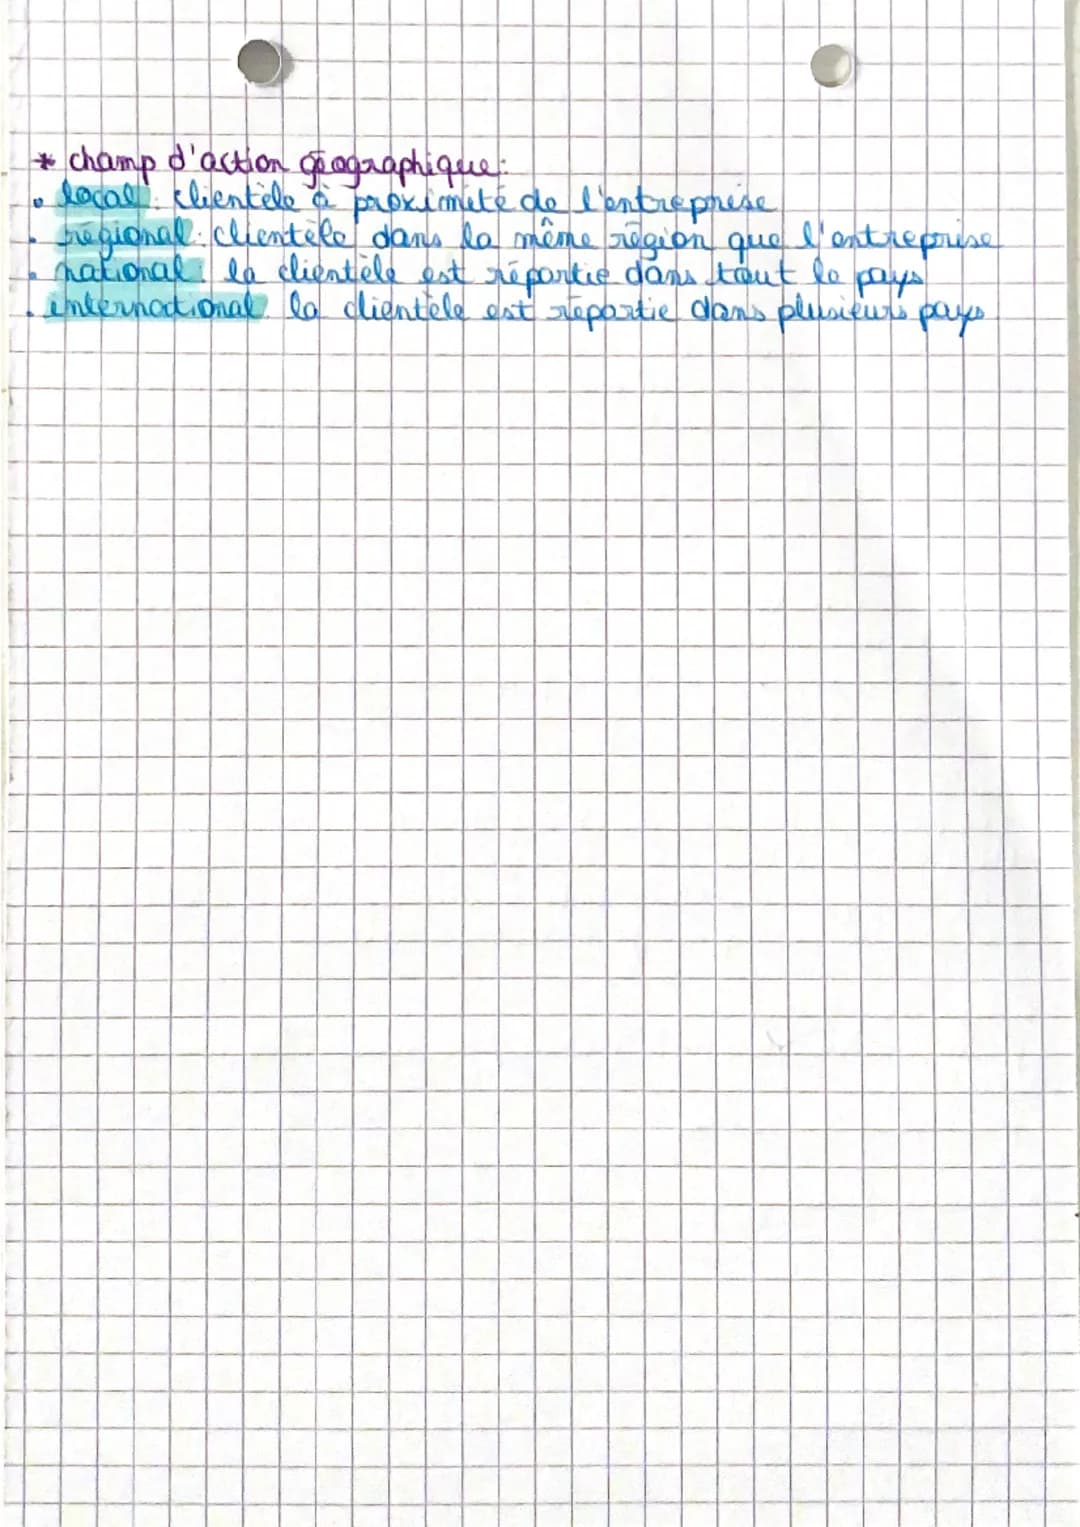 * champ d'action géographique:
• local: clientèle à proximité de l'entreprise
• régional: clientèle dans la même région que l'entreprise
• national: la clientèle est répartie dans tout le pays
• international: la clientèle est répartie dans plusieurs pays